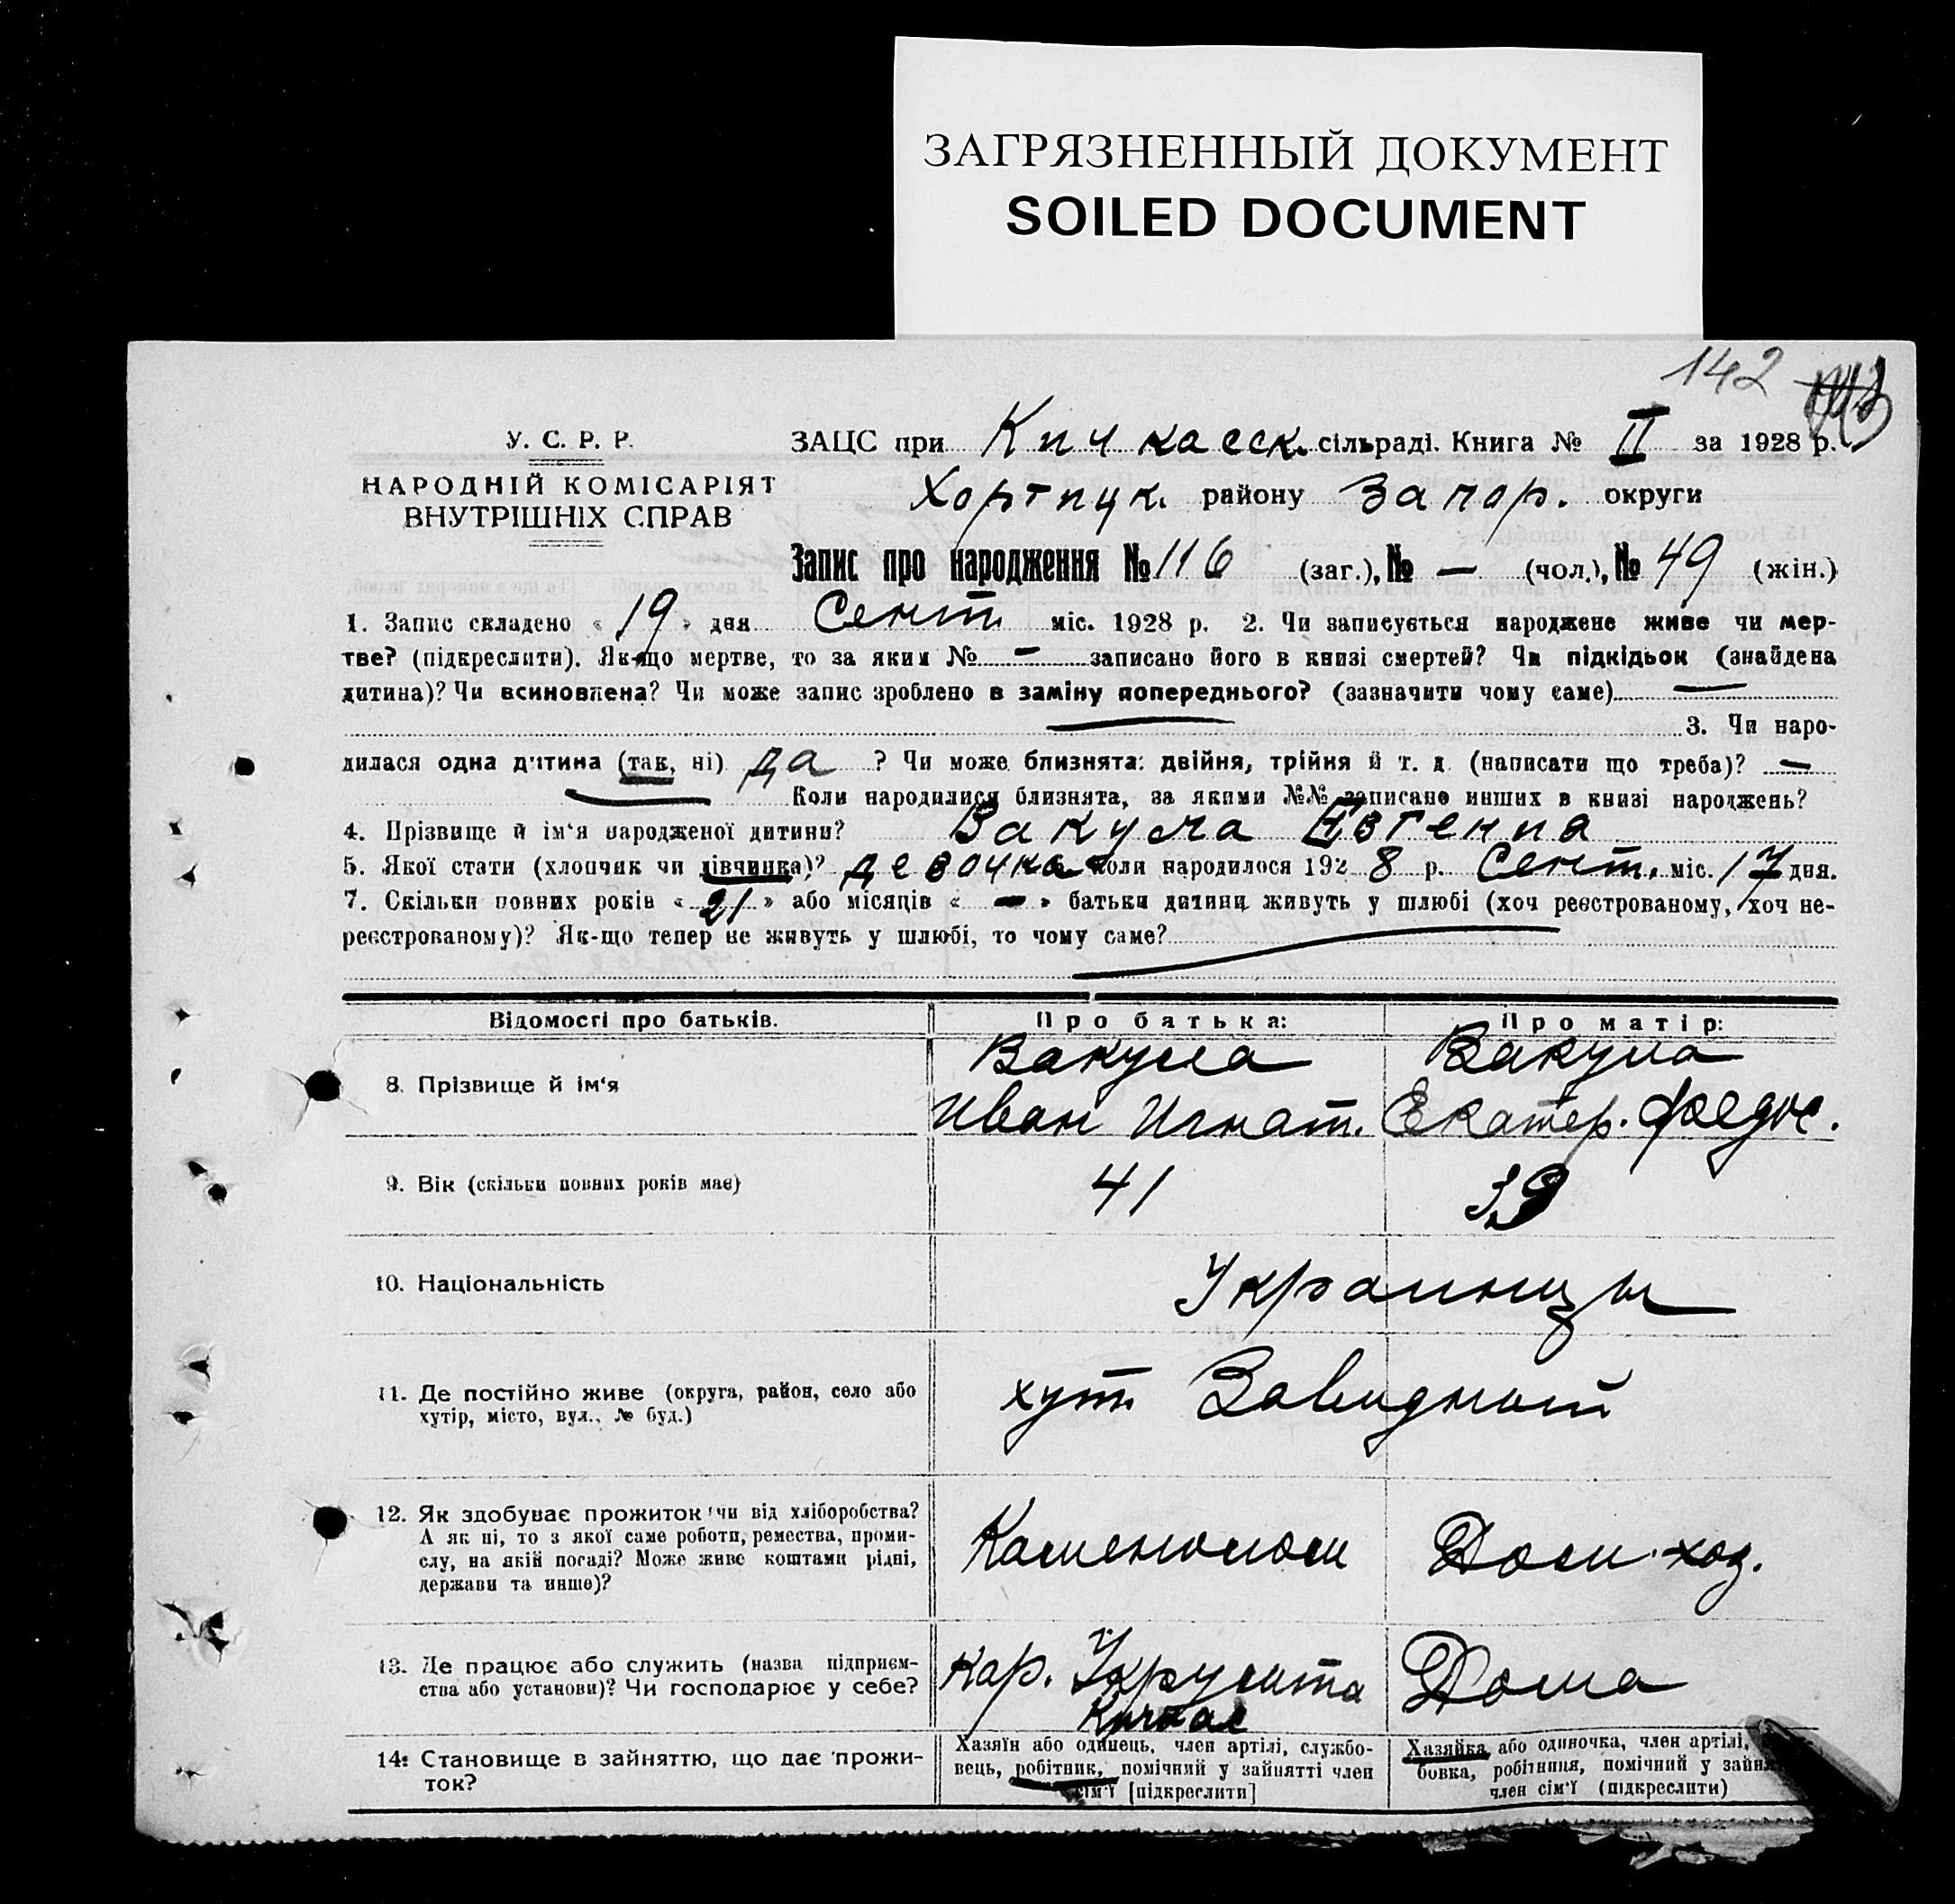 ЗАГРЯЗНЕННЫЙ ДОКУМЕНТ
SOILED DOCUMENT
142
У. С. Р. Р.
НАРОДНІЙ КОМІСАРІЯТ
ВНУТРІШНІХ СПРАВ
ЗАЦС при Кичкасск. сільраді. Книга № II за 1928 р.
Хортицк. району Запор. округи
Запис про народження № 116 (заг.), № — (чол.), № 49 (жін.)
1. Запис складено « 19 » дня Сент. міс. 1928 р. 2. Чи записується народжене живе чи мер-
тве? (підкреслити). Як-що мертве, то за яким № — записано його в книзі смертей? Чи підкідьок (знайдена
дитина)? Чи всиновлена? Чи може запис зроблено в заміну попереднього? (зазначити чому саме) —
— 3. Чи наро-
дилася одна дитина (так, ні) да ? Чи може близнята: двійня, трійня й т. д. (написати що треба)? —
— Коли народилися близнята, за якими №№ записано инших в книзі народжень?
4. Прізвище й ім'я народженої дитини? Вакула Евгения
5. Якої стати (хлопчик чи дівчинка)? девочка Коли народилося 192 8 р. Сент. міс. 17 дня.
7. Скільки повних років « 21 » або місяців « — » батьки дитини живуть у шлюбі (хоч реєстрованому, хоч не-
реєстрованому)? Як-що тепер не живуть у шлюбі, то чому саме? —
Відомості про батьків. Про батька: Про матір:
8. Прізвище й ім'я Вакула Вакула
Иван Игнат. Екатер. Федос.
9. Вік (скільки повних років має) 41 39
10. Національність Украинцы
11. Де постійно живе (округа, район, село або
хутір, місто, вул., № буд.) хут.
12. Як здобуває прожиток (чи від хліборобства?
А як ні, то з якої саме роботи, ремества, проми-
слу, на якій посаді? Може живе коштами рідні,
держави та инше)? Каменолом Дом. хоз.
13. Де працює або служить (назва підприєм-
ства або установи)? Чи господарює у себе? Кар. Дома
Кичкас
14. Становище в зайняттю, що дає прожи-
ток?
Хазяїн або одинець, член артілі, службо-
вець, робітник, помічний у зайнятті член
сім'ї [підкреслити]
Хазяйка або одиночка, член артілі,
бовка, робітниця, помічний у зайня
член сім'ї (підкреслити)